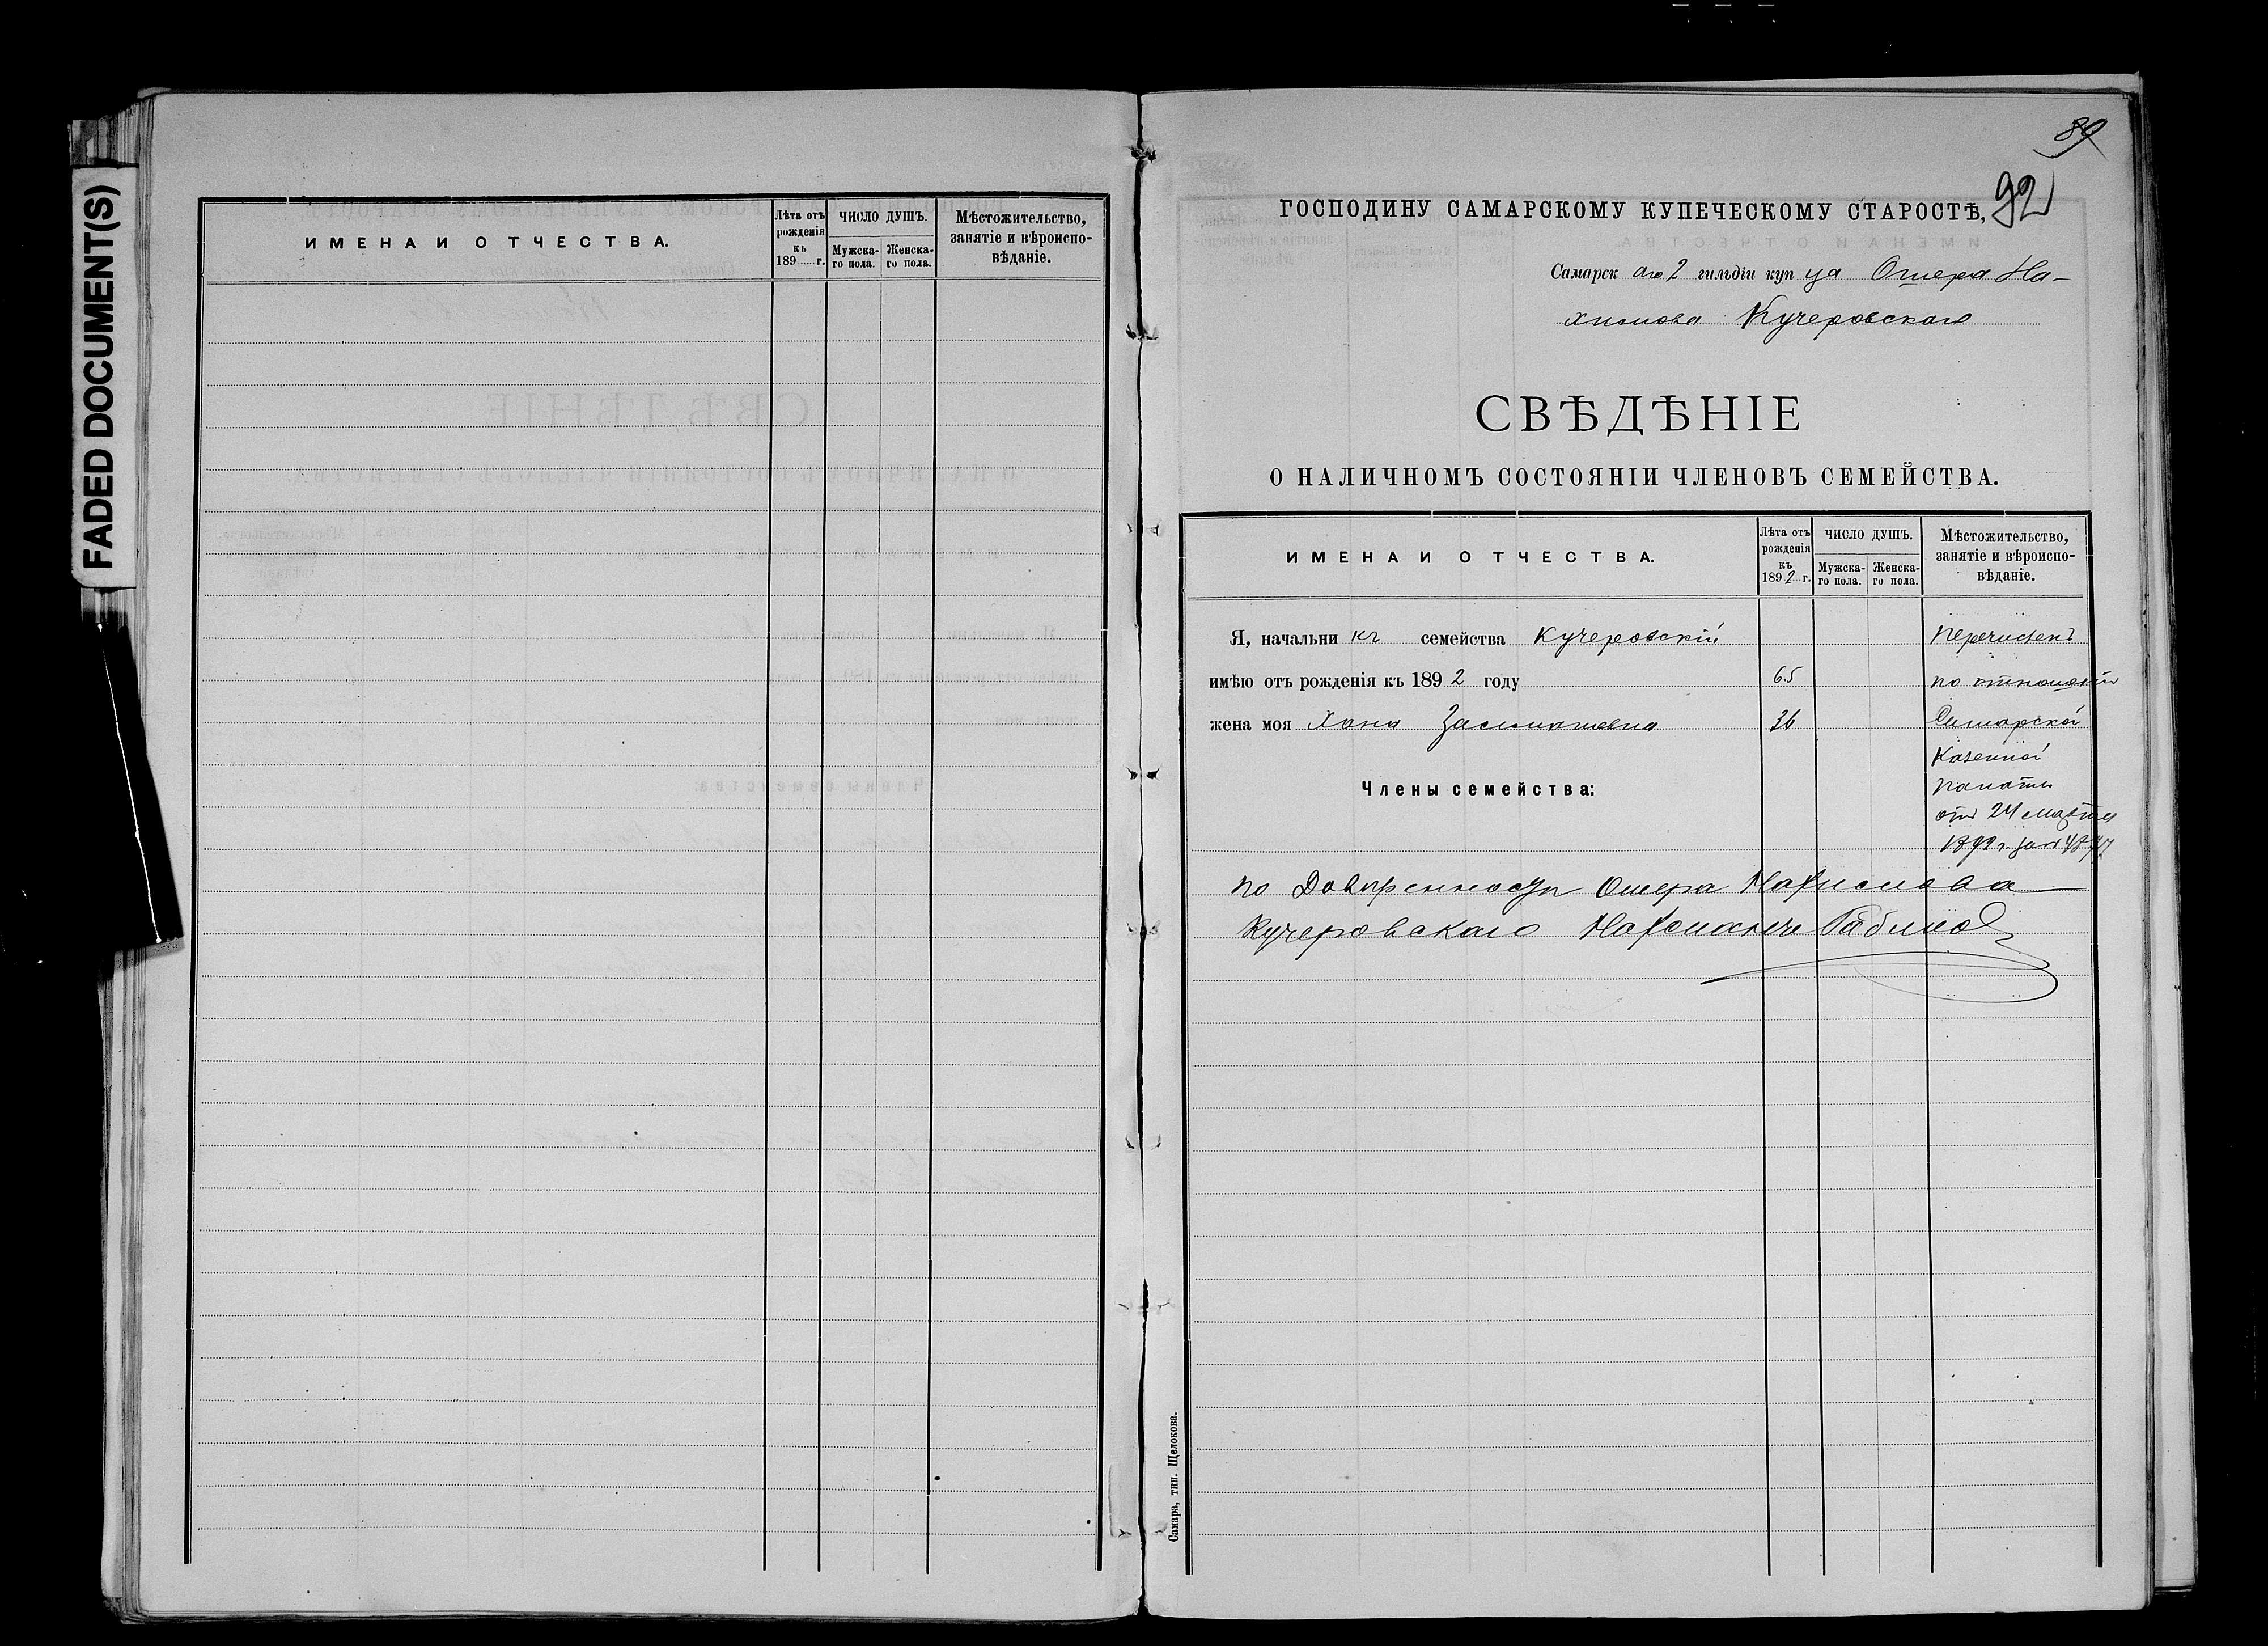 FADED DOCUMENT(S)
ИМЕНА И ОТЧЕСТВА.
Лѣта отъ рожденія къ 189 г.
ЧИСЛО ДУШЪ.
Мужска-го пола.
Женска-го пола.
Мѣстожительство, занятіе и вѣроиспо-вѣданіе.
89
92
ГОСПОДИНУ САМАРСКОМУ КУПЕЧЕСКОМУ СТАРОСТѢ,
Самарск аго 2 гильдіи куп ца Ошера На-
химова Кучеровскаго
СВѢДѢНІЕ
О НАЛИЧНОМЪ СОСТОЯНІИ ЧЛЕНОВЪ СЕМЕЙСТВА.
ИМЕНА И ОТЧЕСТВА.
Лѣта отъ рожденія къ 1892 г.
ЧИСЛО ДУШЪ.
Мужска-го пола.
Женска-го пола.
Мѣстожительство, занятіе и вѣроиспо-вѣданіе.
Я, начальни къ семейства Кучеровскій
перечисленъ
имѣю отъ рожденія къ 1892 году 65
по отношенію
жена моя Хана 36
Самарской
Казенной
Члены семейства:
палаты
отъ 24 марта
по Довѣренности Ошера Нахимова
Кучеровскаго
Самара, тип. Щелокова.